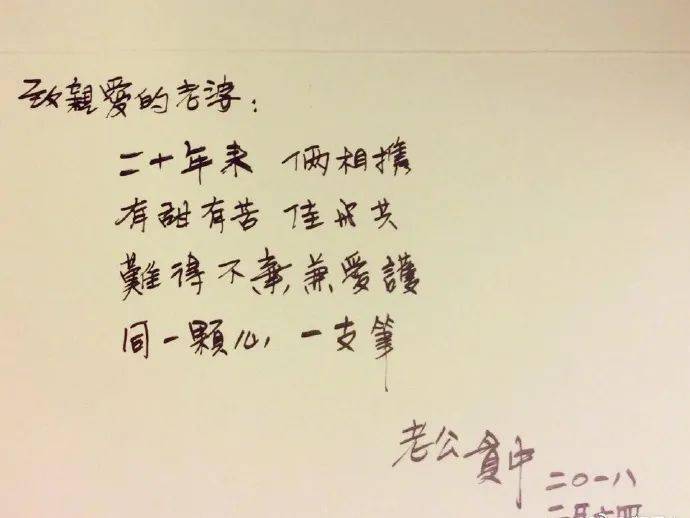 致親愛的老婆：
二十年来 倆相攜
有甜有苦 佳 共
難得不棄兼愛護
同一顆心 一支筆
老公貫中
二〇一八
二月